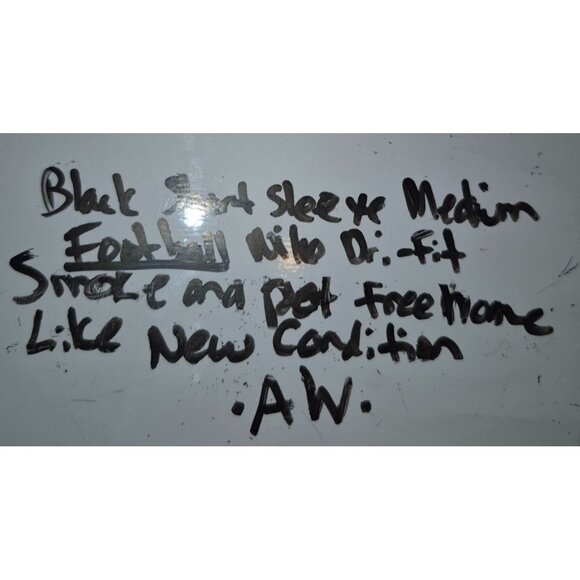 Black Short Sleeve Medium
Football Nike Dri-Fit
Smoke and pet free home
Like New Condition
.AW.